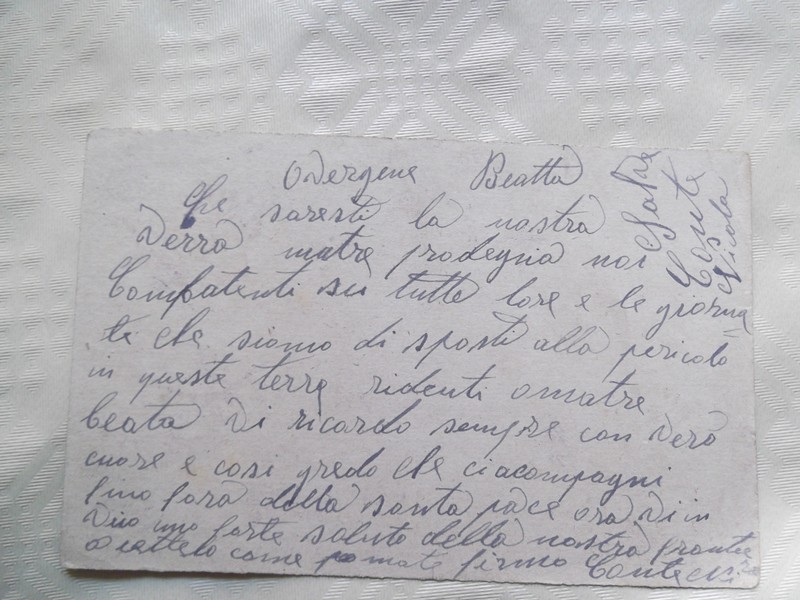 O Vergene Beatta
Che saresti la nostra
Verra matre prodegnia noi
Combatenti su tutte lore e le giorna=
te che siamo di sposti alla pericolo
in queste terre ridenti o matre
beata Vi ricordo sempre con Vero
cuore e cosi gredo che ci acompagni
fino lora della santa pace ora Vi in
Vio uno forte saluto della nostra frontie
come firmo Conte
Conte
Nicola